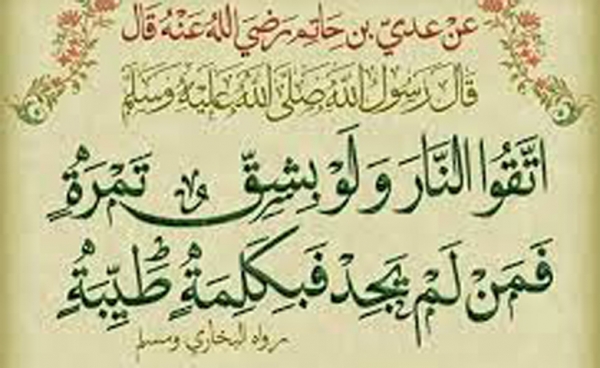 عَنْ عَدِيّ بن حَاتِم رَضِيَ اللهُ عَنْهُ قَال
قَالَ رَسُولُ اللهِ صَلَّى اللهُ عَلَيْهِ وَسَلَّم
اتَّقُوا النَّارَ وَلَوْ بِشِقِّ تَمْرَةٍ
فَمَنْ لَمْ يَجِدْ فَبِكَلِمَةٍ طَيِّبَةٍ
رواه البخاري ومسلم